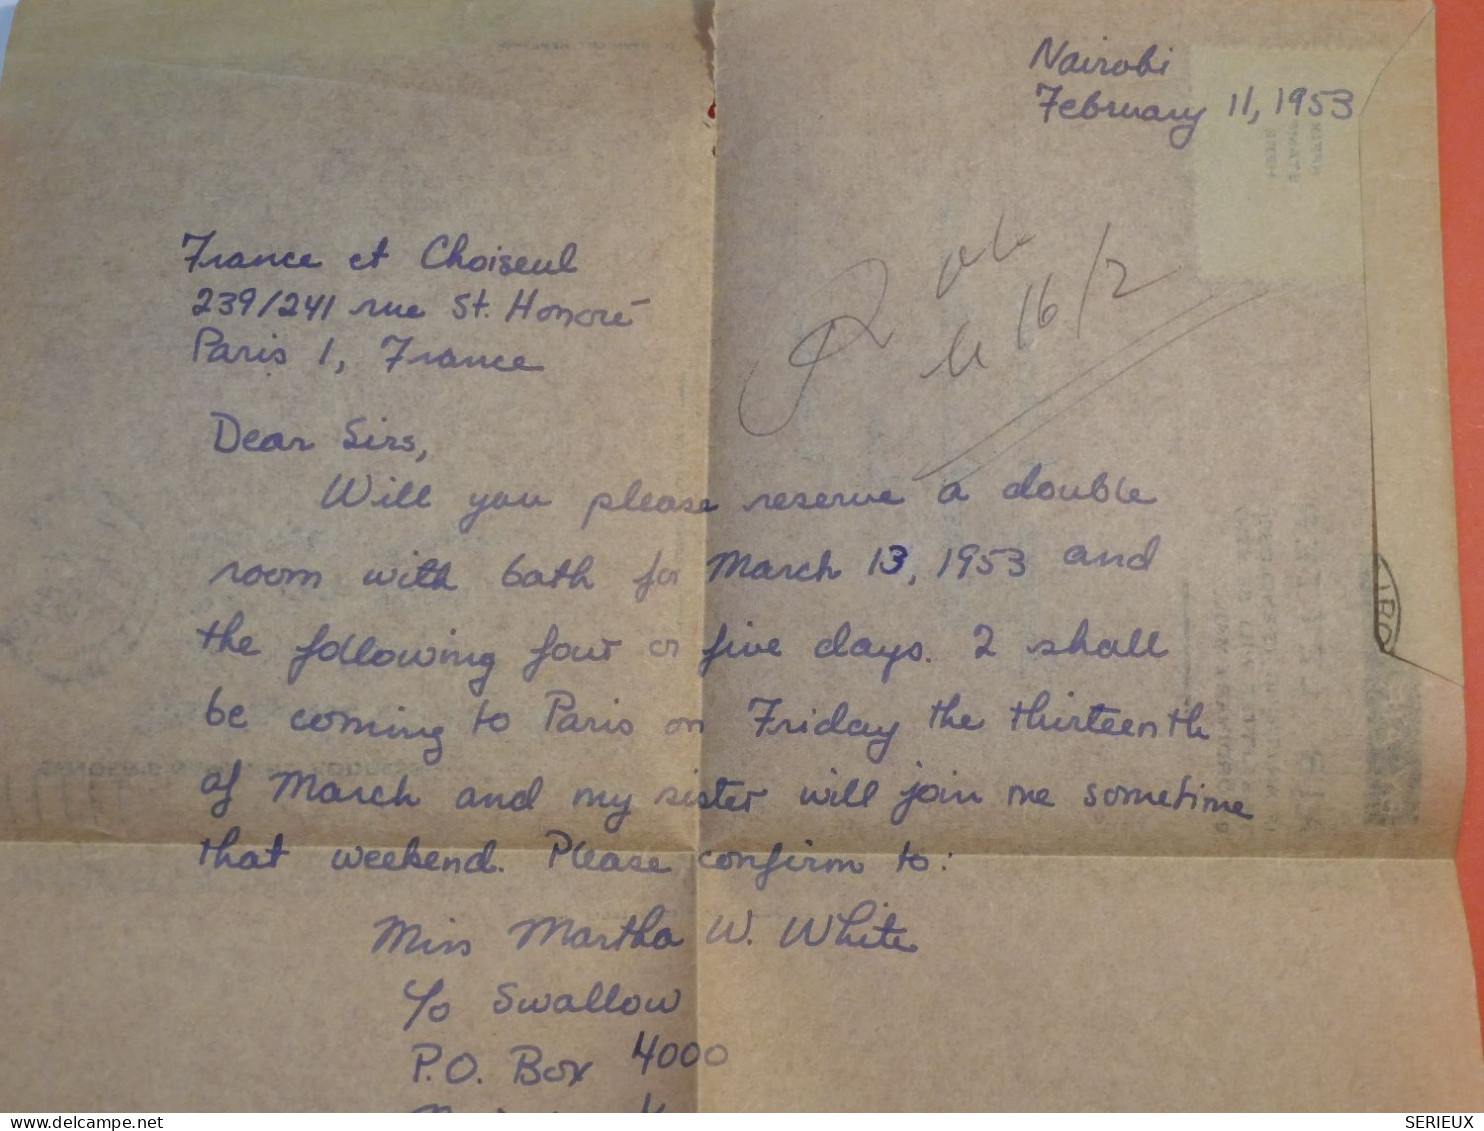 Nairobi
February 11, 1953
France et Choiseul
239/241 rue St. Honoré
Paris 1, France
16/2
Dear Sirs,
Will you please reserve a double
room with bath for March 13, 1953 and
the following four or five days. I shall
be coming to Paris on Friday the thirteenth
of March and my sister will join me sometime
that weekend. Please confirm to:
Miss Martha W. White
c/o Swallow
P.O. Box 4000
delcampe.net
SERIEUX